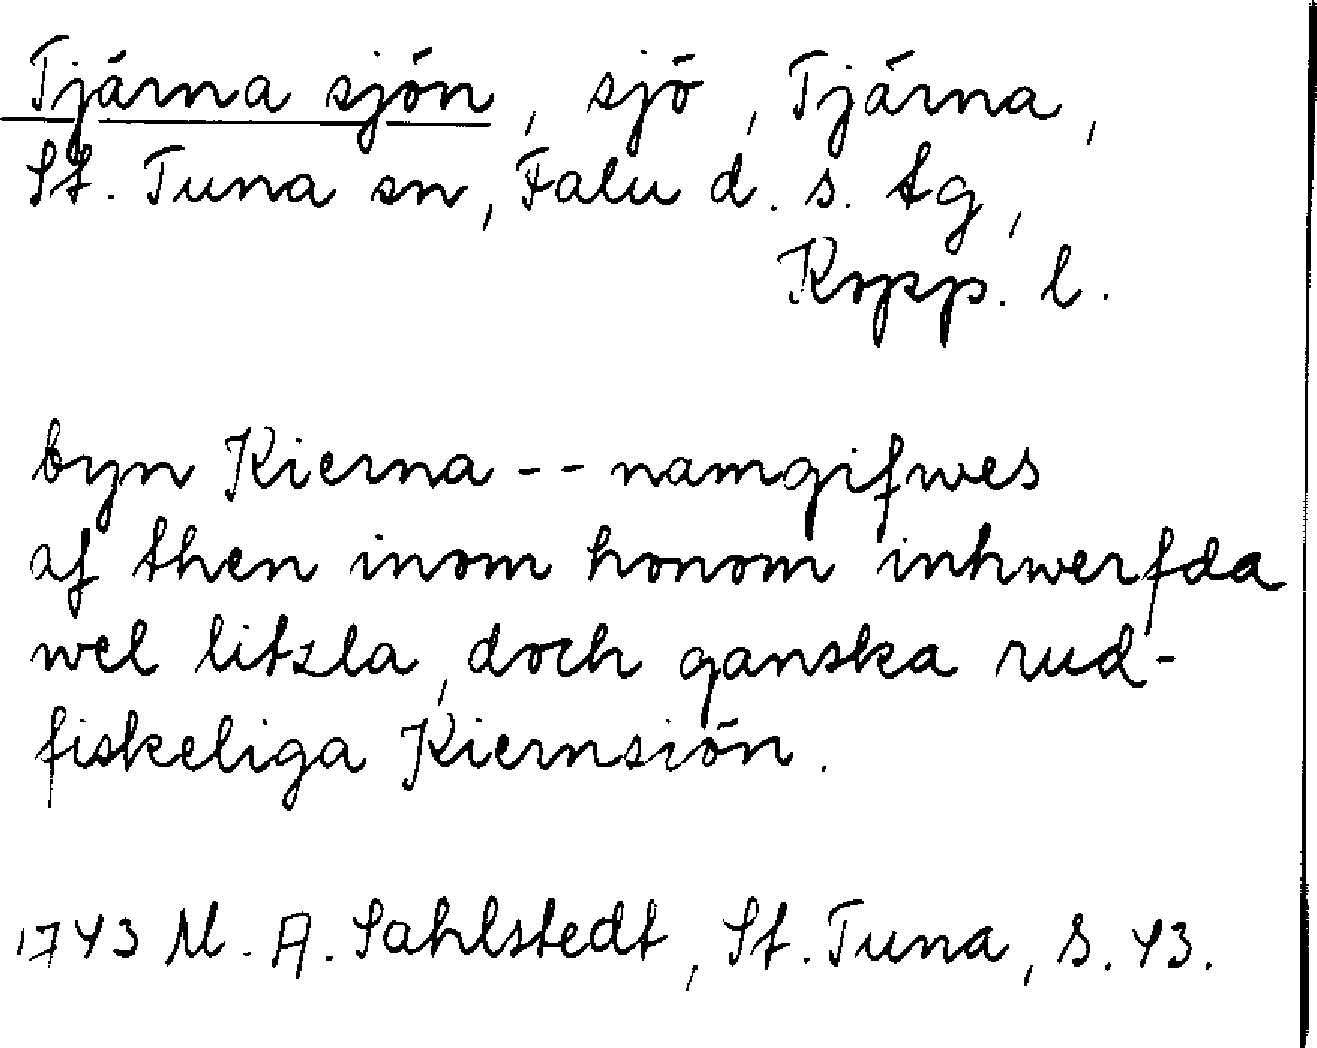 Tjärna sjön, sjö, Tjärna,
St. Tuna sn, Falu d. s. tg,
Kopp. l.
byn Kierna -- namngifwes
af then inom honom inhwerfda
wel litzla, doch ganska rud-
fiskeliga Kiernsiön.
1743 M. A. Sahlstedt, St. Tuna, s. 43.